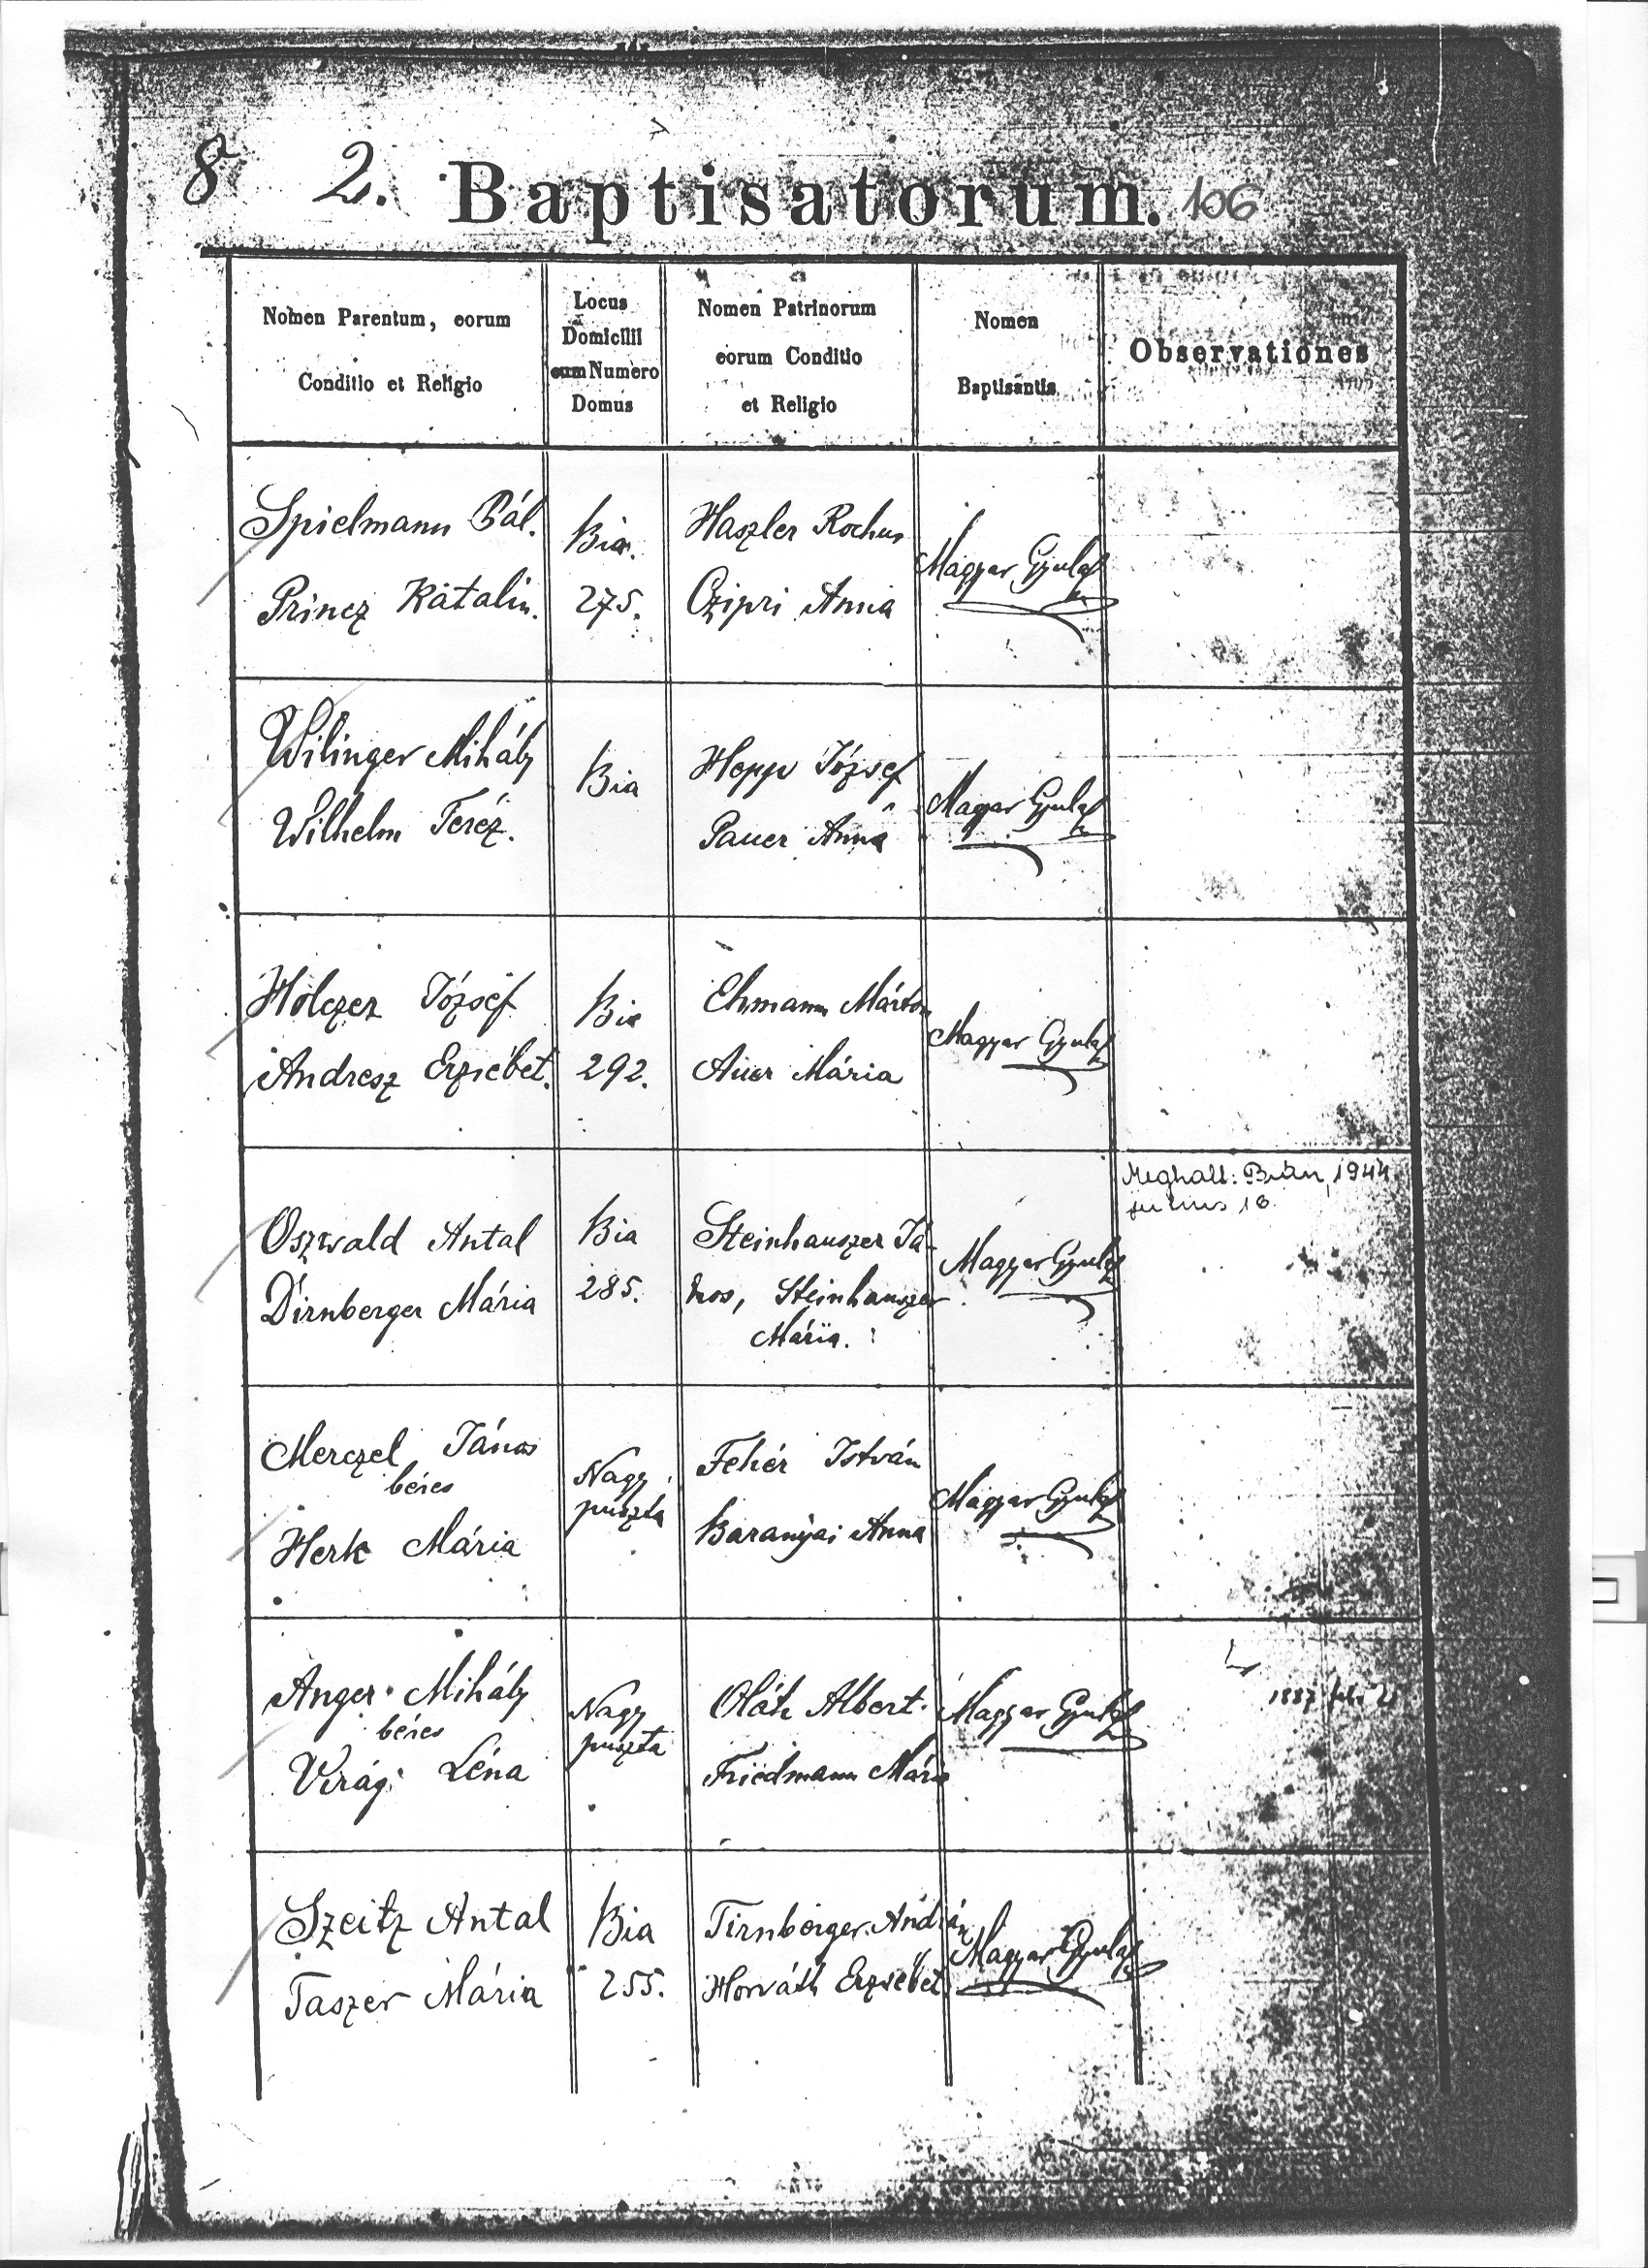 8 2. Baptisatorum. 106
Nomen Parentum, eorum
Conditio et Religio
Locus
Domicilii
cum Numero
Domus
Nomen Patrinorum
eorum Conditio
et Religio
Nomen
Baptisantis
Observationes
Spielmann Pál.
Princz Katalin.
Bia.
275.
Haszler Rochus
Czipri Anna
Magyar Gyula
Wilinger Mihály
Wilhelm Teréz.
Bia
Hepp József
Pauer Anna
Magyar Gyula
Holczer József
Andresz Erzsébet.
Bia
292.
Ehmann Márton
Auer Mária
Magyar Gyula
Oszwald Antal
Dirnberger Mária
Bia
285.
Steinhauszer Já-
nos, Steinhauszer
Mária.
Magyar Gyula
Meghalt: Bián, 1944
julius 18.
Merczel János
béres
Herk Mária
Nagy
puszta
Fehér István
Baranyai Anna
Magyar Gyula
Anger Mihály
béres
Virág Léna
Nagy
puszta
Oláh Albert.
Friedmann Mária
Magyar Gyula
1887 feb.
Szeitz Antal
Taszer Mária
Bia
255.
Tirnberger András
Horváth Erzsébet
Magyar Gyula